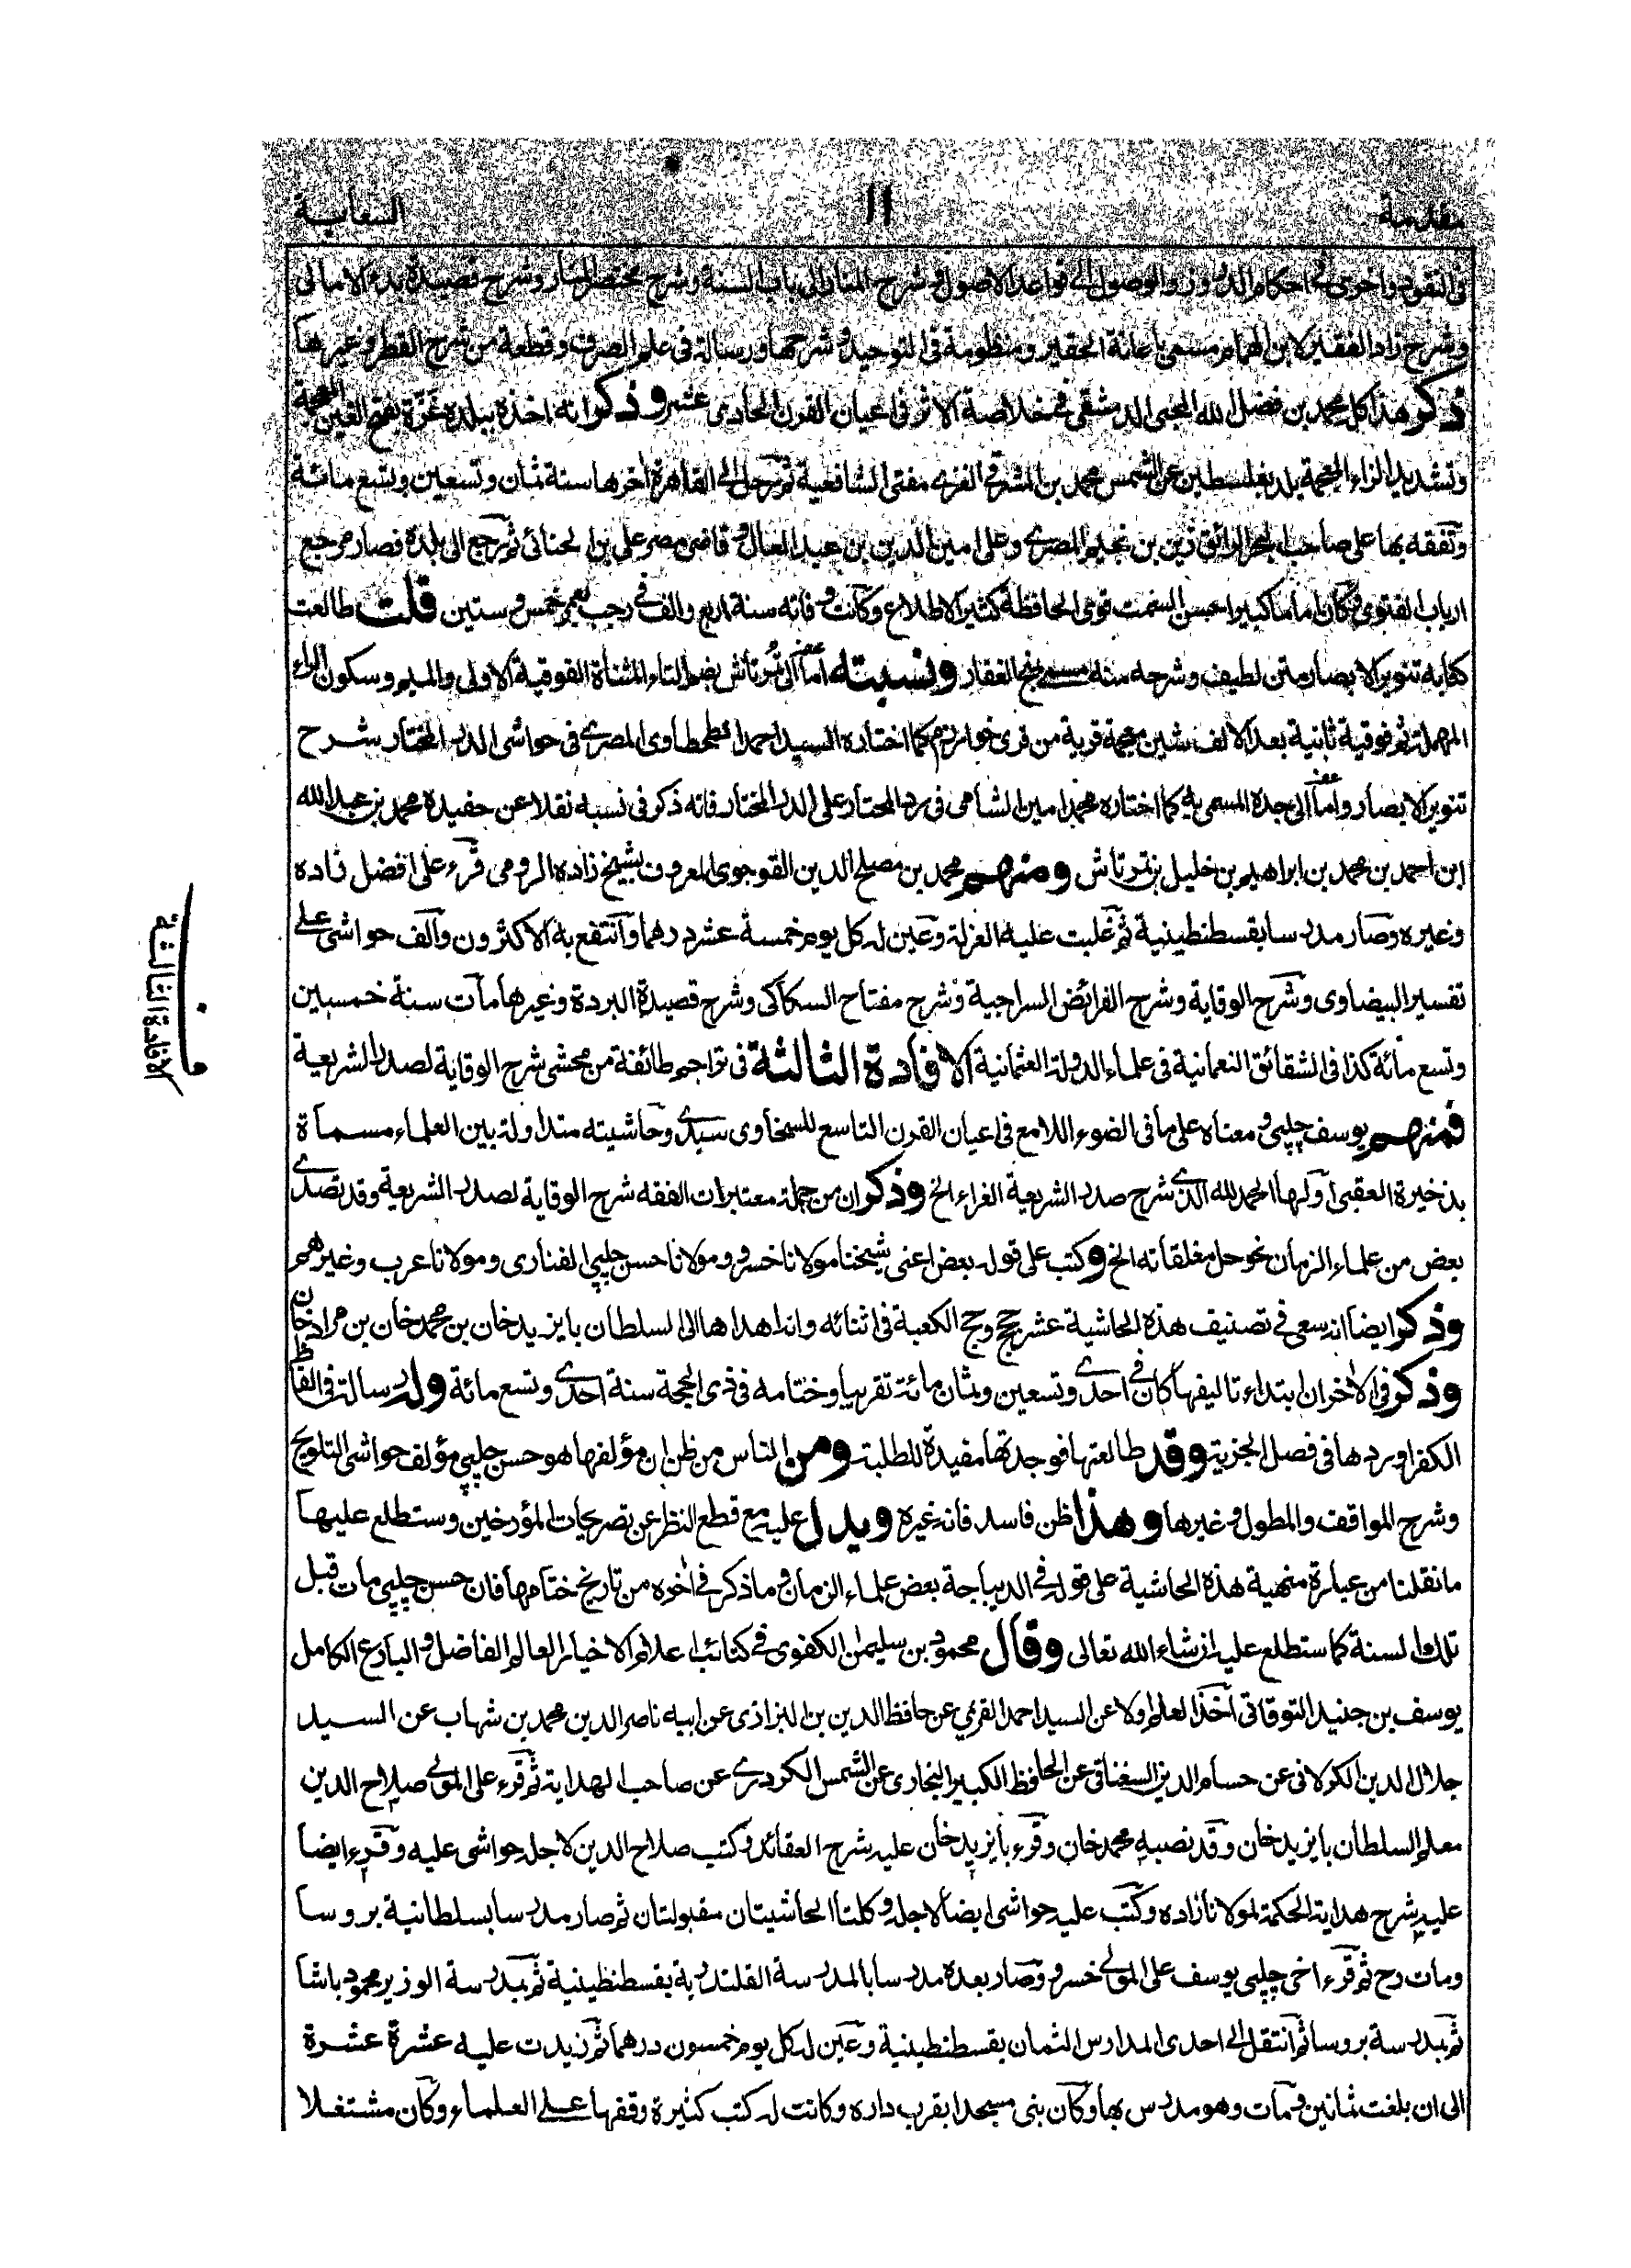 مقدمة ١١ السعاية
فى النقود واخرى فى احكام الدروز والوصول الى قواعد الاصول وشرح المنار الى باب السنة وشرح مختصر المنار وشرح قصيدة بدء الامالى
وشرح زاد الفقير لابن الهمام مسمى باعانة الحقير ومنظومة فى التوحيد وشرحها ورسالة فى علم الصرف وقطعة من شرح القطر وغيرها
ذكر هذا كل محمد بن فضل الله المحبى الدمشقى فى خلاصة الاثر فى اعيان القرن الحادى عشر وذكر انه اخذه ببلده غزة بفتح الغين المعجمة
وتشديد الزاء المعجمة بلد بفلسطين عن الشمس محمد بن المشرقى الغزى مفتى الشافعية ثم رحل الى القاهرة آخرها سنة ثمان وتسعين وتسع مائة
وتفقه بها على صاحب البحر الرائق زين بن نجيم المصرى وعلى امين الدين بن عبد العال وقاضى مصر على بن الحنائى ثم رجع الى بلده فصار مرجع
ارباب الفتوى وكان اماما كبيرا حسن السمت قوى الحافظة كثير الاطلاع وكانت وفاته سنة اربع والف فى رجب بعمر خمس وستين قلت طالعت
كتابه تنوير الابصار متن لطيف وشرحه منه مسمى بمنح الغفار ونسبته اما الى تمرتاش بضم التاء المثناة الفوقية الاولى والميم وسكون الراء
المهملة ثم فوقية ثانية بعد الالف شين معجمة قرية من قرى خوارزم كما اختاره السيد احمد الطحطاوى المصرى فى حواشى الدر المختار شرح
تنوير الابصار واما الى جده المسمى به كما اختاره محمد امين الشامى فى رد المحتار على الدر المختار فانه ذكر فى نسبه نقلا عن حفيده محمد بن عبد الله
ابن احمد بن محمد بن ابراهيم بن خليل بن تمرتاش ومنهم محمد بن مصلح الدين القوجوى المعروف بشيخ زاده الرومى قرء على افضل زاده
وغيره وصار مدرسا بقسطنطينية ثم غلبت عليه العزلة وعين له كل يوم خمسة عشر درهما وانتفع به الاكثرون والف حواشى على
تفسير البيضاوى وشرح الوقاية وشرح الفرائض السراجية وشرح مفتاح السكاكى وشرح قصيدة البردة وغيرها مات سنة خمسين
وتسع مائة كذا فى الشقائق النعمانية فى علماء الدولة العثمانية الافادة الثالثة فى تراجم طائفة من محشى شرح الوقاية لصدر الشريعة
فمنهم يوسف چلپى ومعناه على ما فى الضوء اللامع فى اعيان القرن التاسع للسخاوى سيدى وحاشيته متداولة بين العلماء مسماة
بذخيرة العقبى اولها الحمد لله الذى شرح صدر الشريعة الغراء الخ وذكر ان من جملة معتبرات الفقه شرح الوقاية لصدر الشريعة وقد تصدى
بعض من علماء الزمان نحو حل مغلقاته الخ وكتب على قوله بعض اعنى شيخنا مولانا خسرو ومولانا حسن چلپى الفنارى ومولانا عرب وغيرهم
وذكر ايضا انه سعى فى تصنيف هذه الحاشية عشر حجج وحج الكعبة فى اثنائه وانه اهداها الى السلطان بايزيد خان بن محمد خان بن مراد خان
وذكر فى الآخر ان ابتداء تاليفها كان فى احدى وتسعين وثمان مائة تقريبا وختامه فى ذى الحجة سنة احدى وتسع مائة وله رسالة فى الفاظ
الكفر اوردها فى فصل الجزية وقد طالعتها فوجدتها مفيدة للطلبة ومن الناس من ظن ان مؤلفها هو حسن چلپى مؤلف حواشى التلويح
وشرح المواقف والمطول وغيرها وهذا ظن فاسد فانه غيره ويدل عليه مع قطع النظر عن تصريحات المؤرخين وستطلع عليها
ما نقلنا من عبارة منهية هذه الحاشية على قوله فى الديباجة بعض علماء الزمان وما ذكر فى اخره من تاريخ ختامها فان حسن چلپى مات قبل
تلك السنة كما ستطلع عليه ان شاء الله تعالى وقال محمود بن سليمان الكفوى فى كتائب اعلام الاخيار العالم الفاضل والبارع الكامل
يوسف بن جنيد التوقاتى اخذ العلم اولا عن السيد احمد القريمى عن حافظ الدين بن البزازى عن ابيه ناصر الدين محمد بن شهاب عن السيد
جلال الدين الكرلانى عن حسام الدين السغناقى عن الحافظ الكبير البخارى عن الشمس الكردرى عن صاحب الهداية ثم قرء على المولى صلاح الدين
معلم السلطان بايزيد خان وقد نصبه محمد خان وقرء بايزيد خان عليه شرح العقائد وكتب صلاح الدين لاجله حواشى عليه وقرء ايضا
عليه شرح هداية الحكمة لمولانا زاده وكتب عليه حواشى ايضا لاجله وكلتا الحاشيتان مقبولتان ثم صار مدرسا بسلطانية بروسا
ومات رح ثم قرء اخى چلپى يوسف على المولى خسرو وصار بعده مدرسا بالمدرسة القلندرية بقسطنطينية ثم بمدرسة الوزير محمود باشا
ثم بمدرسة بروسا ثم انتقل الى احدى المدارس الثمان بقسطنطينية وعين له كل يوم خمسون درهما ثم زيدت عليه عشرة عشرة
الى ان بلغت ثمانين ومات وهو مدرس بها وكان بنى مسجدا بقرب داره وكانت له كتب كثيرة وقفها على العلماء وكان مشتغلا
الافادة الثالثة